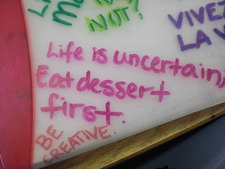 NOT?
VIVEZ
LA V
Life is uncertain,
Eat dessert
first.
BE
CREATIVE.